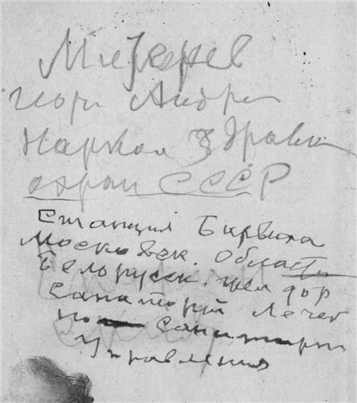 Митерев
Георг Андре
Нарком Здраво
охран СССР
Станция Барвиха
Московск. Область
Белорусск. жел дор
Санаторий Лечеб
но Санитарн
Управления